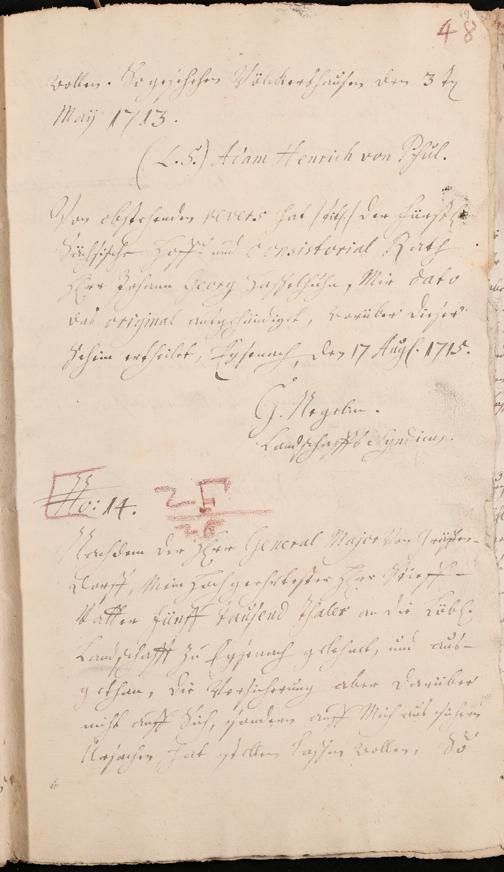 48
wollen. So geschehen Völckershausen den 3 t
May 1713.
(L.S.) Adam Henrich von Phul.
Von obstehenden revers hat der Fürstl.
Sächsische Hoff- und Consistorial Rath
Herr Johann Georg, Mir dato
das original außgehändiget, worüber dieser
Schein ertheilet, Eysenach, den 17 Augl. 1715.
G. Negelin.
Landschaffts Syndicus.
No: 14.
25
Nachdem der Herr General Major von
dorff, Mein Hochgeehrtester Herr Stieff-
Vatter fünff tausend Thaler an die Löbl.
Landschafft zu Eysenach gelehnet, und aus-
gethan, die Versicherung aber darüber
nicht auff Sich, sondern auff Mich aus sichern
Ursachen, hat stellen lassen wollen, So